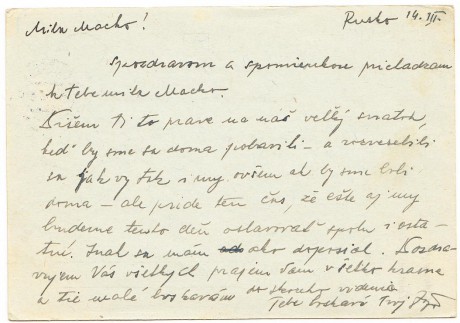 Milá Macko! Rusko 14.III.
S pozdravom a spomienkou prichádzam
k Tebe milá Macko.
Píšem Ti to práve na náš veľký sviatok,
keď by sme sa doma pobavili – a rozveselili
sa jak vy tak i my ovšem ak by sme boli
doma – ale príde ten čas, že ešte aj my
budeme tento deň oslavovať spolu i osta-
tní. Inak sa mám ako doposiaľ. Pozdra-
vujem Vás všetkých prajem Vám všetko krásne
a tie malé boskávam do skorého videnia
Tebe Tvoj